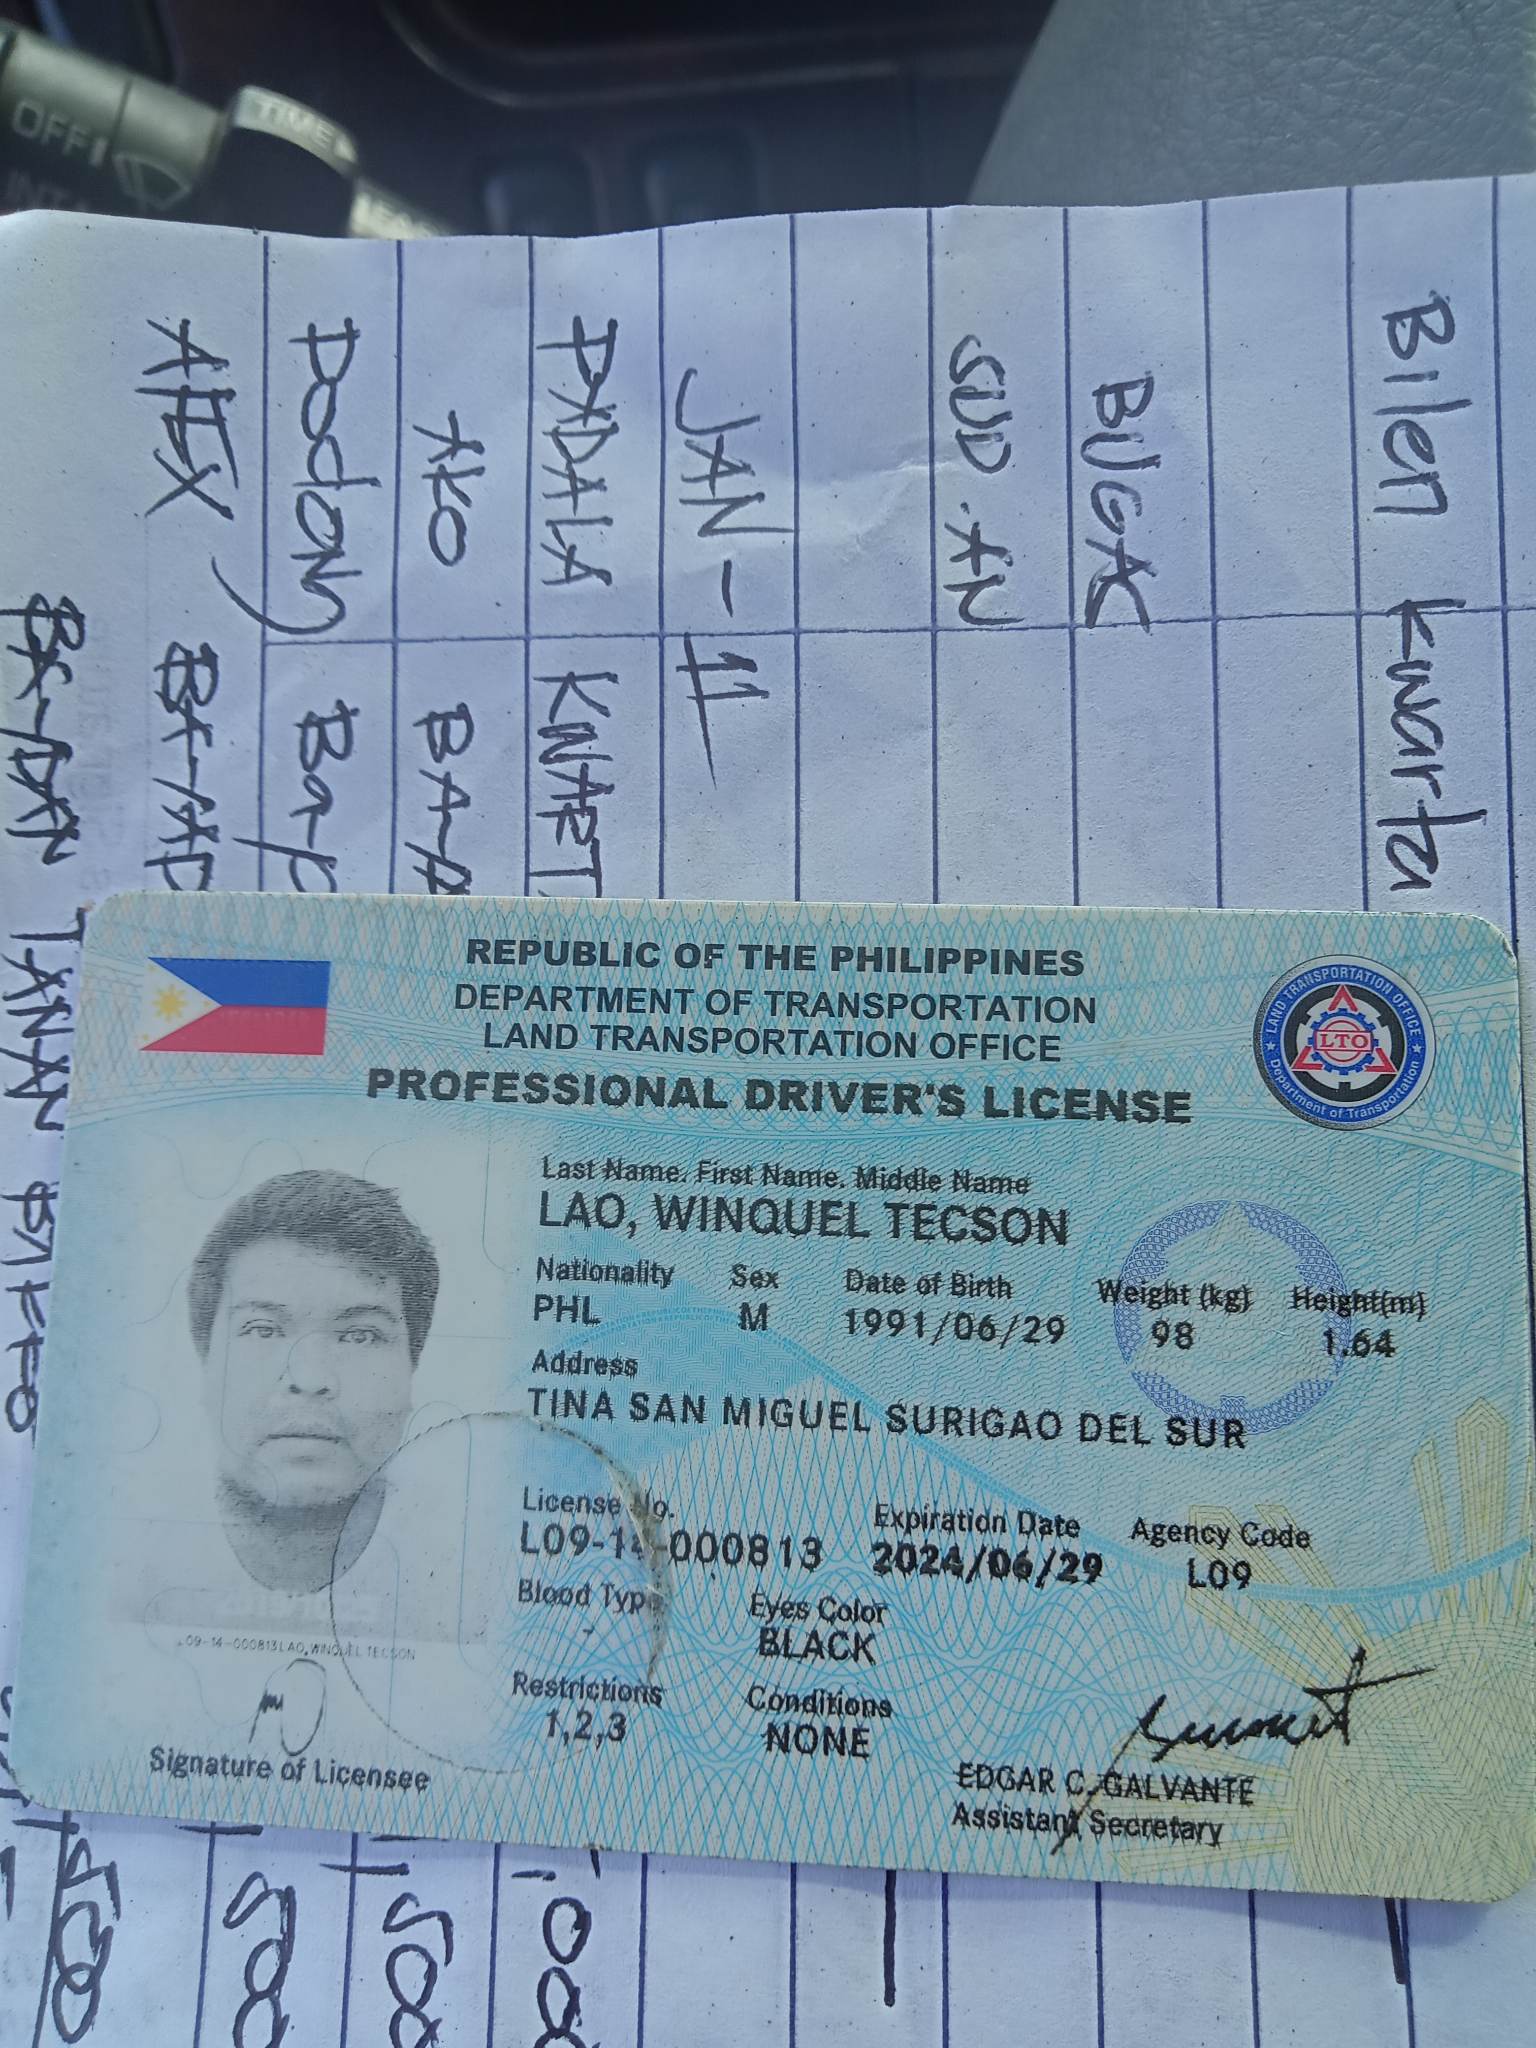 OFF
INT
TIME
Bilen Kwarta
BUGAC
SUD-AN
JAN-11
PADALA KWART
AKO BA-
Dodong Ba-
ALEX BA-AD
BA-AD
TANAN
500
500
1,500
,000
REPUBLIC OF THE PHILIPPINES
DEPARTMENT OF TRANSPORTATION
LAND TRANSPORTATION OFFICE
PROFESSIONAL DRIVER'S LICENSE
LAND TRANSPORTATION OFFICE
LTO
Department of Transportation
Last Name. First Name. Middle Name
LAO, WINQUEL TECSON
Nationality Sex Date of Birth Weight (kg) Height(m)
PHL M 1991/06/29 98 1.64
Address
TINA SAN MIGUEL SURIGAO DEL SUR
License No. Expiration Date Agency Code
L09-14-000813 2024/06/29 L09
Blood Type Eyes Color
- BLACK
Restrictions Conditions
1,2,3 NONE
09-14-000813LAO,WINQUEL TECSON
Signature of Licensee
EDGAR C. GALVANTE
Assistant Secretary